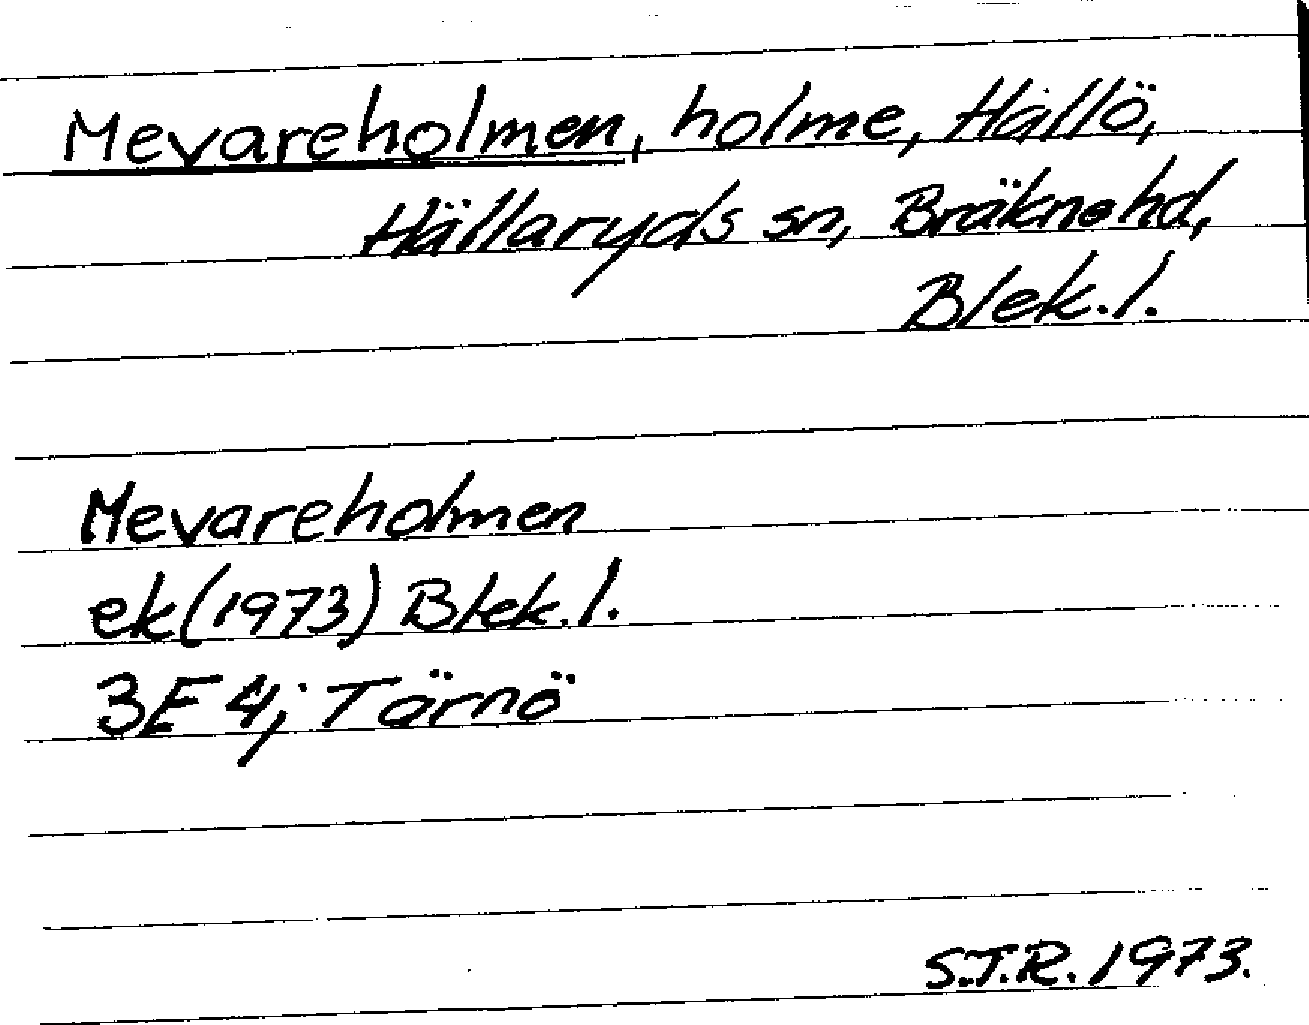 Mevareholmen, holme, Hällö,
Hällaryds sn, Bräkne hd,
Blek. l.
Mevareholmen
ek (1973) Blek. l.
3E 4; Tärnö
S.T.R. 1973.